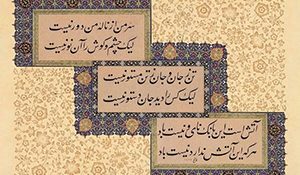 سر من از ناله من دور نیست
لیک چشم و گوش را آن نور نیست
تن ز جان و جان ز تن مستور نیست
لیک کس را دید جان دستور نیست
آتش است این بانگ نای و نیست باد
هر که این آتش ندارد نیست باد